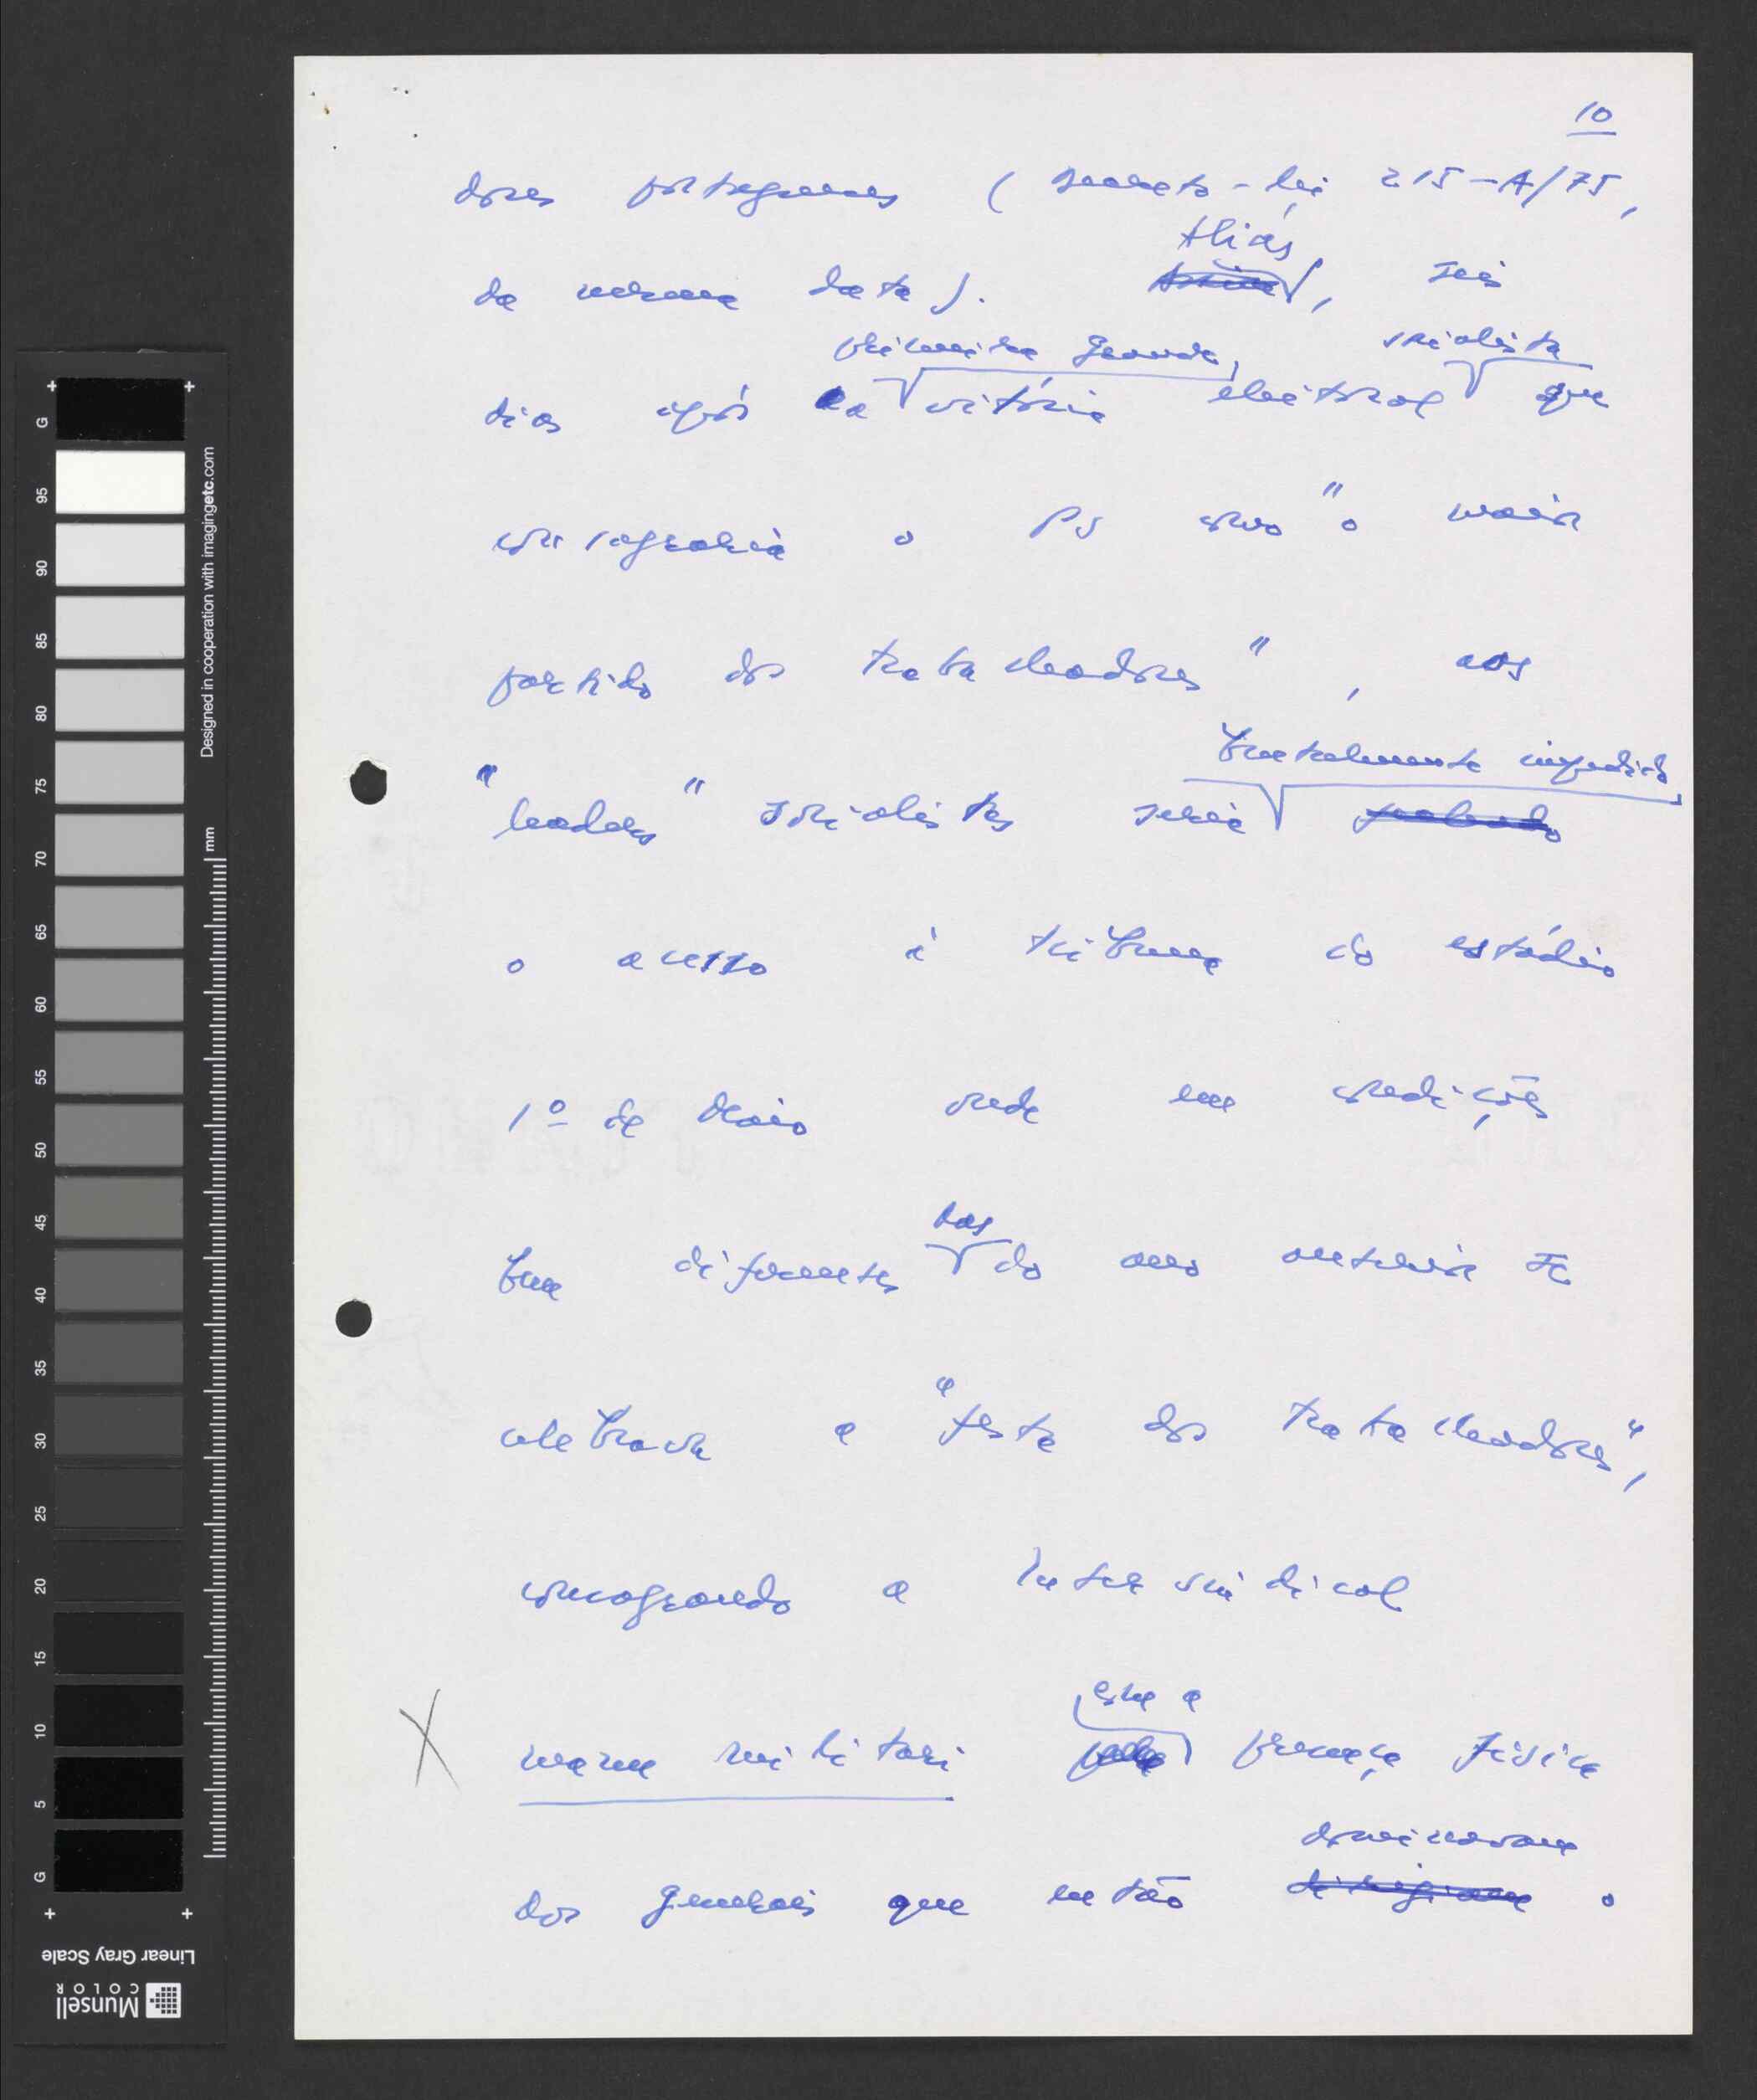 10
dores portugueses (Decreto-lei 215-A/75,
Aliás
da mesma data). , seis
primeira grande, socialista
dias após a vitória eleitoral que
consagraria o PS como "o maior
partido dos trabalhadores", aos
brutalmente impedido
"leaders" socialistas seria
o acesso à tribuna do estádio
1º de Maio onde em condições
das
bem diferentes do ano anterior se
celebrava a "festa dos trabalhadores",
consagrando a Intersindical
com a
manu militari pela presença física
dos generais que então dirigiam o
dominavam
Designed in cooperation with imagingetc.com
mm
G 95 90 85 80 75 70 65 60 55 50 45 40 35 30 25 20 15 10 5 G
Linear Gray Scale
Munsell
COLOR